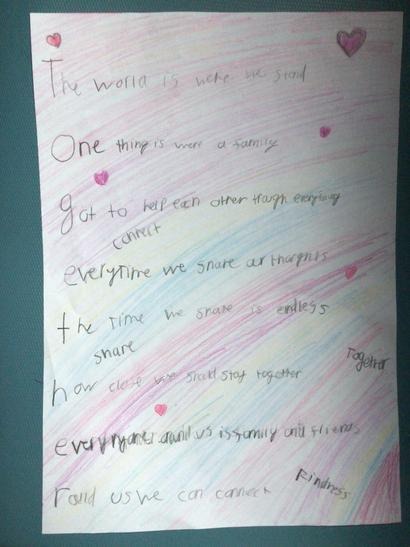 The world is were we stand
One thing is were a family
got to help each other trough everything
connect
everytime we share our thoughts
the time we share is endless
share
how close we shall stay together
Together
everyone around us is family and friends
round us we can connect
Kindness